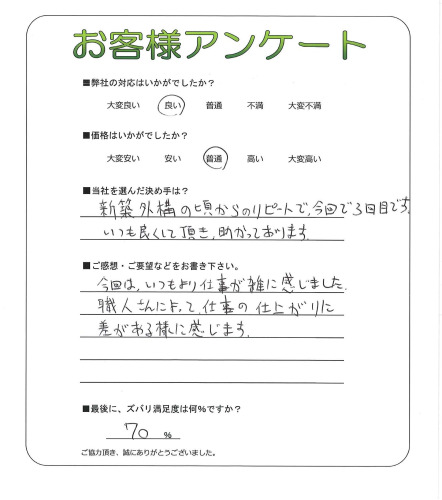 お客様アンケート
■弊社の対応はいかがでしたか?
大変良い 良い 普通 不満 大変不満
■価格はいかがでしたか?
大変安い 安い 普通 高い 大変高い
■当社を選んだ決め手は?
新築外構の頃からのリピートで、今回で3回目です。
いつも良くして頂き、助かっております。
■ご感想・ご要望などをお書き下さい。
今回は、いつもより仕事が雑に感じました。
職人さんによって、仕事の仕上がりに
差がある様に感じます。
■最後に、ズバリ満足度は何%ですか?
70 %
ご協力頂き、誠にありがとうございました。